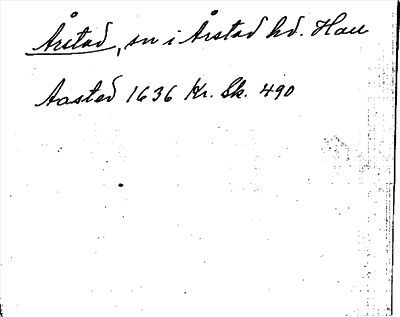 Årstad, sn i Årstad hd. Hall
Aasted 1636 Kr. Sk. 490